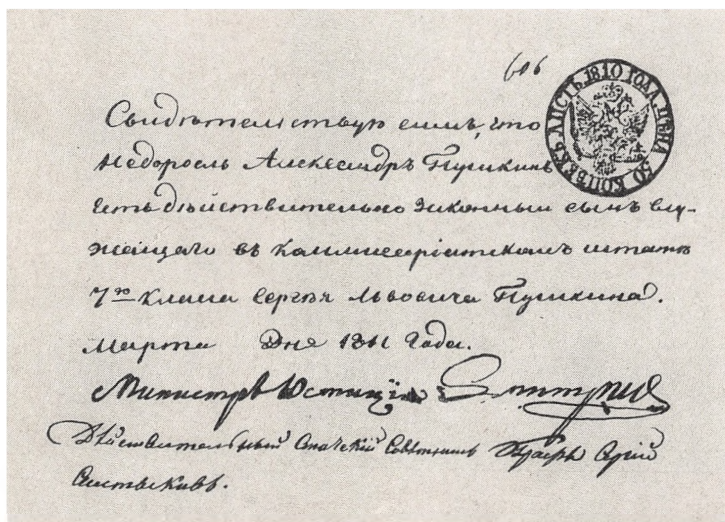 606
ЛИСТЪ 1810 ГОДА. ЦѢНА 50 КОПѢЕКЪ
Свидѣтельствую симъ, что
Недоросль Александръ Пушкинъ
есть дѣйствительно законный сынъ слу-
жащаго въ Коммисерiатскомъ штатѣ
7го класса Сергѣя Львовича Пушкина.
Марта Дня 1811 Года.
Министръ Юстицiи
Дѣйствительный Статскiй Совѣтникъ